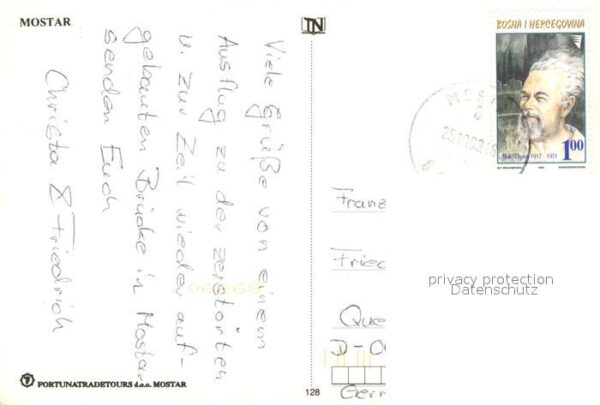 MOSTAR
Viele Grüße von einem
Ausflug zu der zerstörten
u. zur Zeit wieder auf-
gebauten Brücke in Mostar
senden Euch
Christa & Friedrich
PORTUNATRADETOURS d.o.o. MOSTAR
TN
128
BOSNA I HERCEGOVINA
1917 - 1971
1.00
Franz
Fried
Que
D-0
Ger
privacy protection
Datenschutz